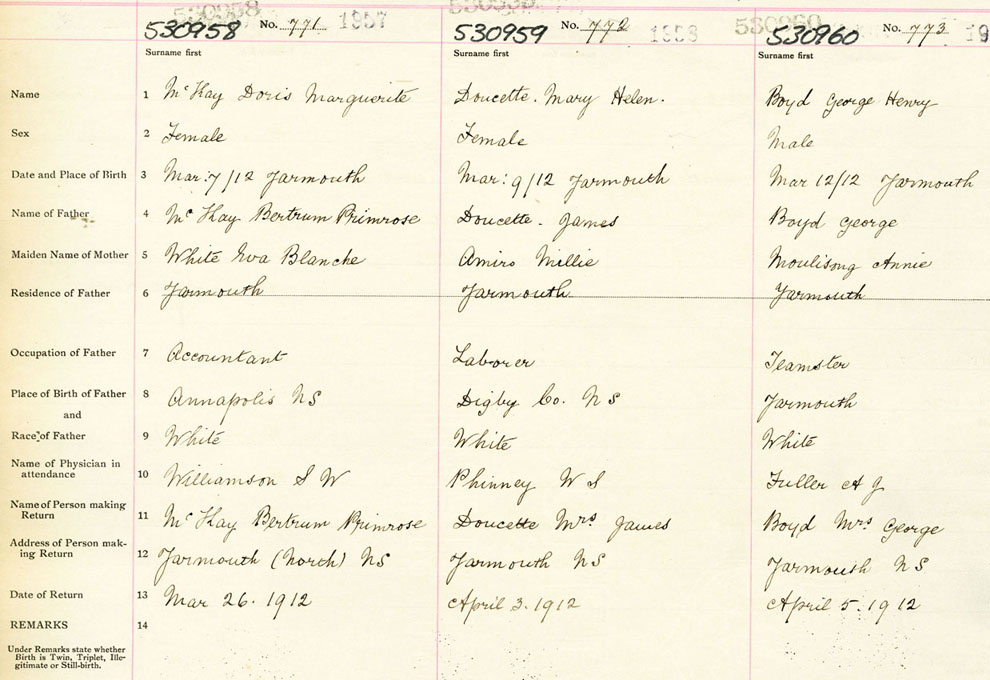 530958 No. 771 1957 530959 No. 772 1958 530960 No. 773 19
Surname first Surname first Surname first
Name 1 McKay Doris Marguerite Doucette. Mary Helen. Boyd George Henry
Sex 2 Female Female Male
Date and Place of Birth 3 Mar: 7/12 Yarmouth Mar: 9/12 Yarmouth Mar 12/12 Yarmouth
Name of Father 4 McKay Bertrum Primrose Doucette. James Boyd George
Maiden Name of Mother 5 White Eva Blanche Amiro Millie Moulisong Annie
Residence of Father 6 Yarmouth Yarmouth Yarmouth
Occupation of Father 7 Accountant Laborer Teamster
Place of Birth of Father 8 Annapolis NS Digby Co. NS Yarmouth
and
Race of Father 9 White White White
Name of Physician in
attendance 10 Williamson S W Phinney W S Fuller A J
Name of Person making
Return 11 McKay Bertrum Primrose Doucette Mrs James Boyd Mrs George
Address of Person mak-
ing Return 12 Yarmouth (North) NS Yarmouth NS Yarmouth NS
Date of Return 13 Mar 26. 1912 April 3. 1912 April 5. 1912
REMARKS 14
Under Remarks state whether
Birth is Twin, Triplet, Ille-
gitimate or Still-birth.